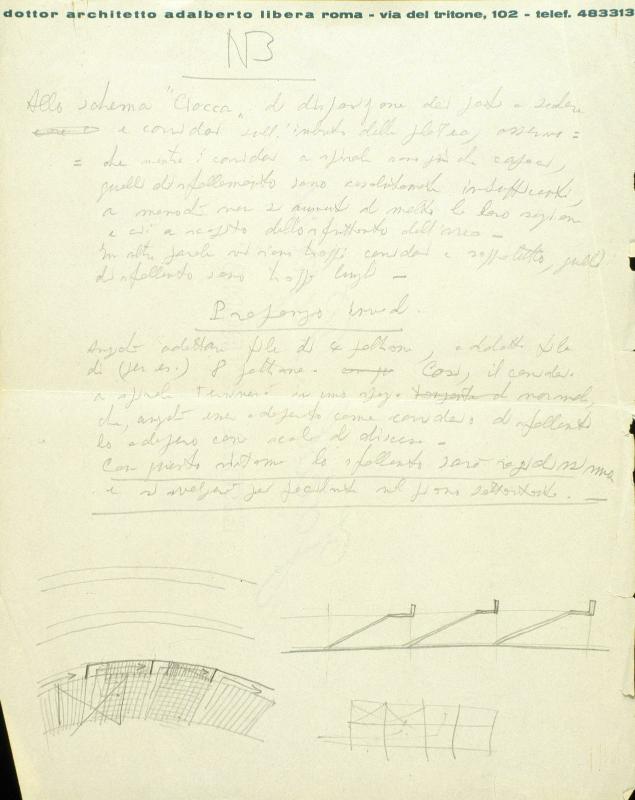 dottor architetto adalberto libera roma - via del tritone, 102 - telef. 483313
NB
Allo schema "Ciocca" di disposizione dei posti a sedere
e corridoi sull' della platea, osservo =
= che mentre i corridoi a spirale sono più che capaci,
quelli di sfollamento sono assolutamente insufficienti,
a meno che non si aumenti di molto la loro sezione
e ciò a scapito dello sfruttamento dell'area -
In altre parole vi sono troppi corridoi e soprattutto, quelli
di sfollamento sono troppo lunghi -
adottare file di 4 poltrone, adotto file
di (per es.) 8 poltrone. Così, il corridoio
a spirale normale,
che, essere adoperato come corridoio di sfollamento
lo adopero con scale di discesa -
Con questo sistema lo sfollamento sarà rapidissimo
e si svolgerà per nel piano sottostante. -